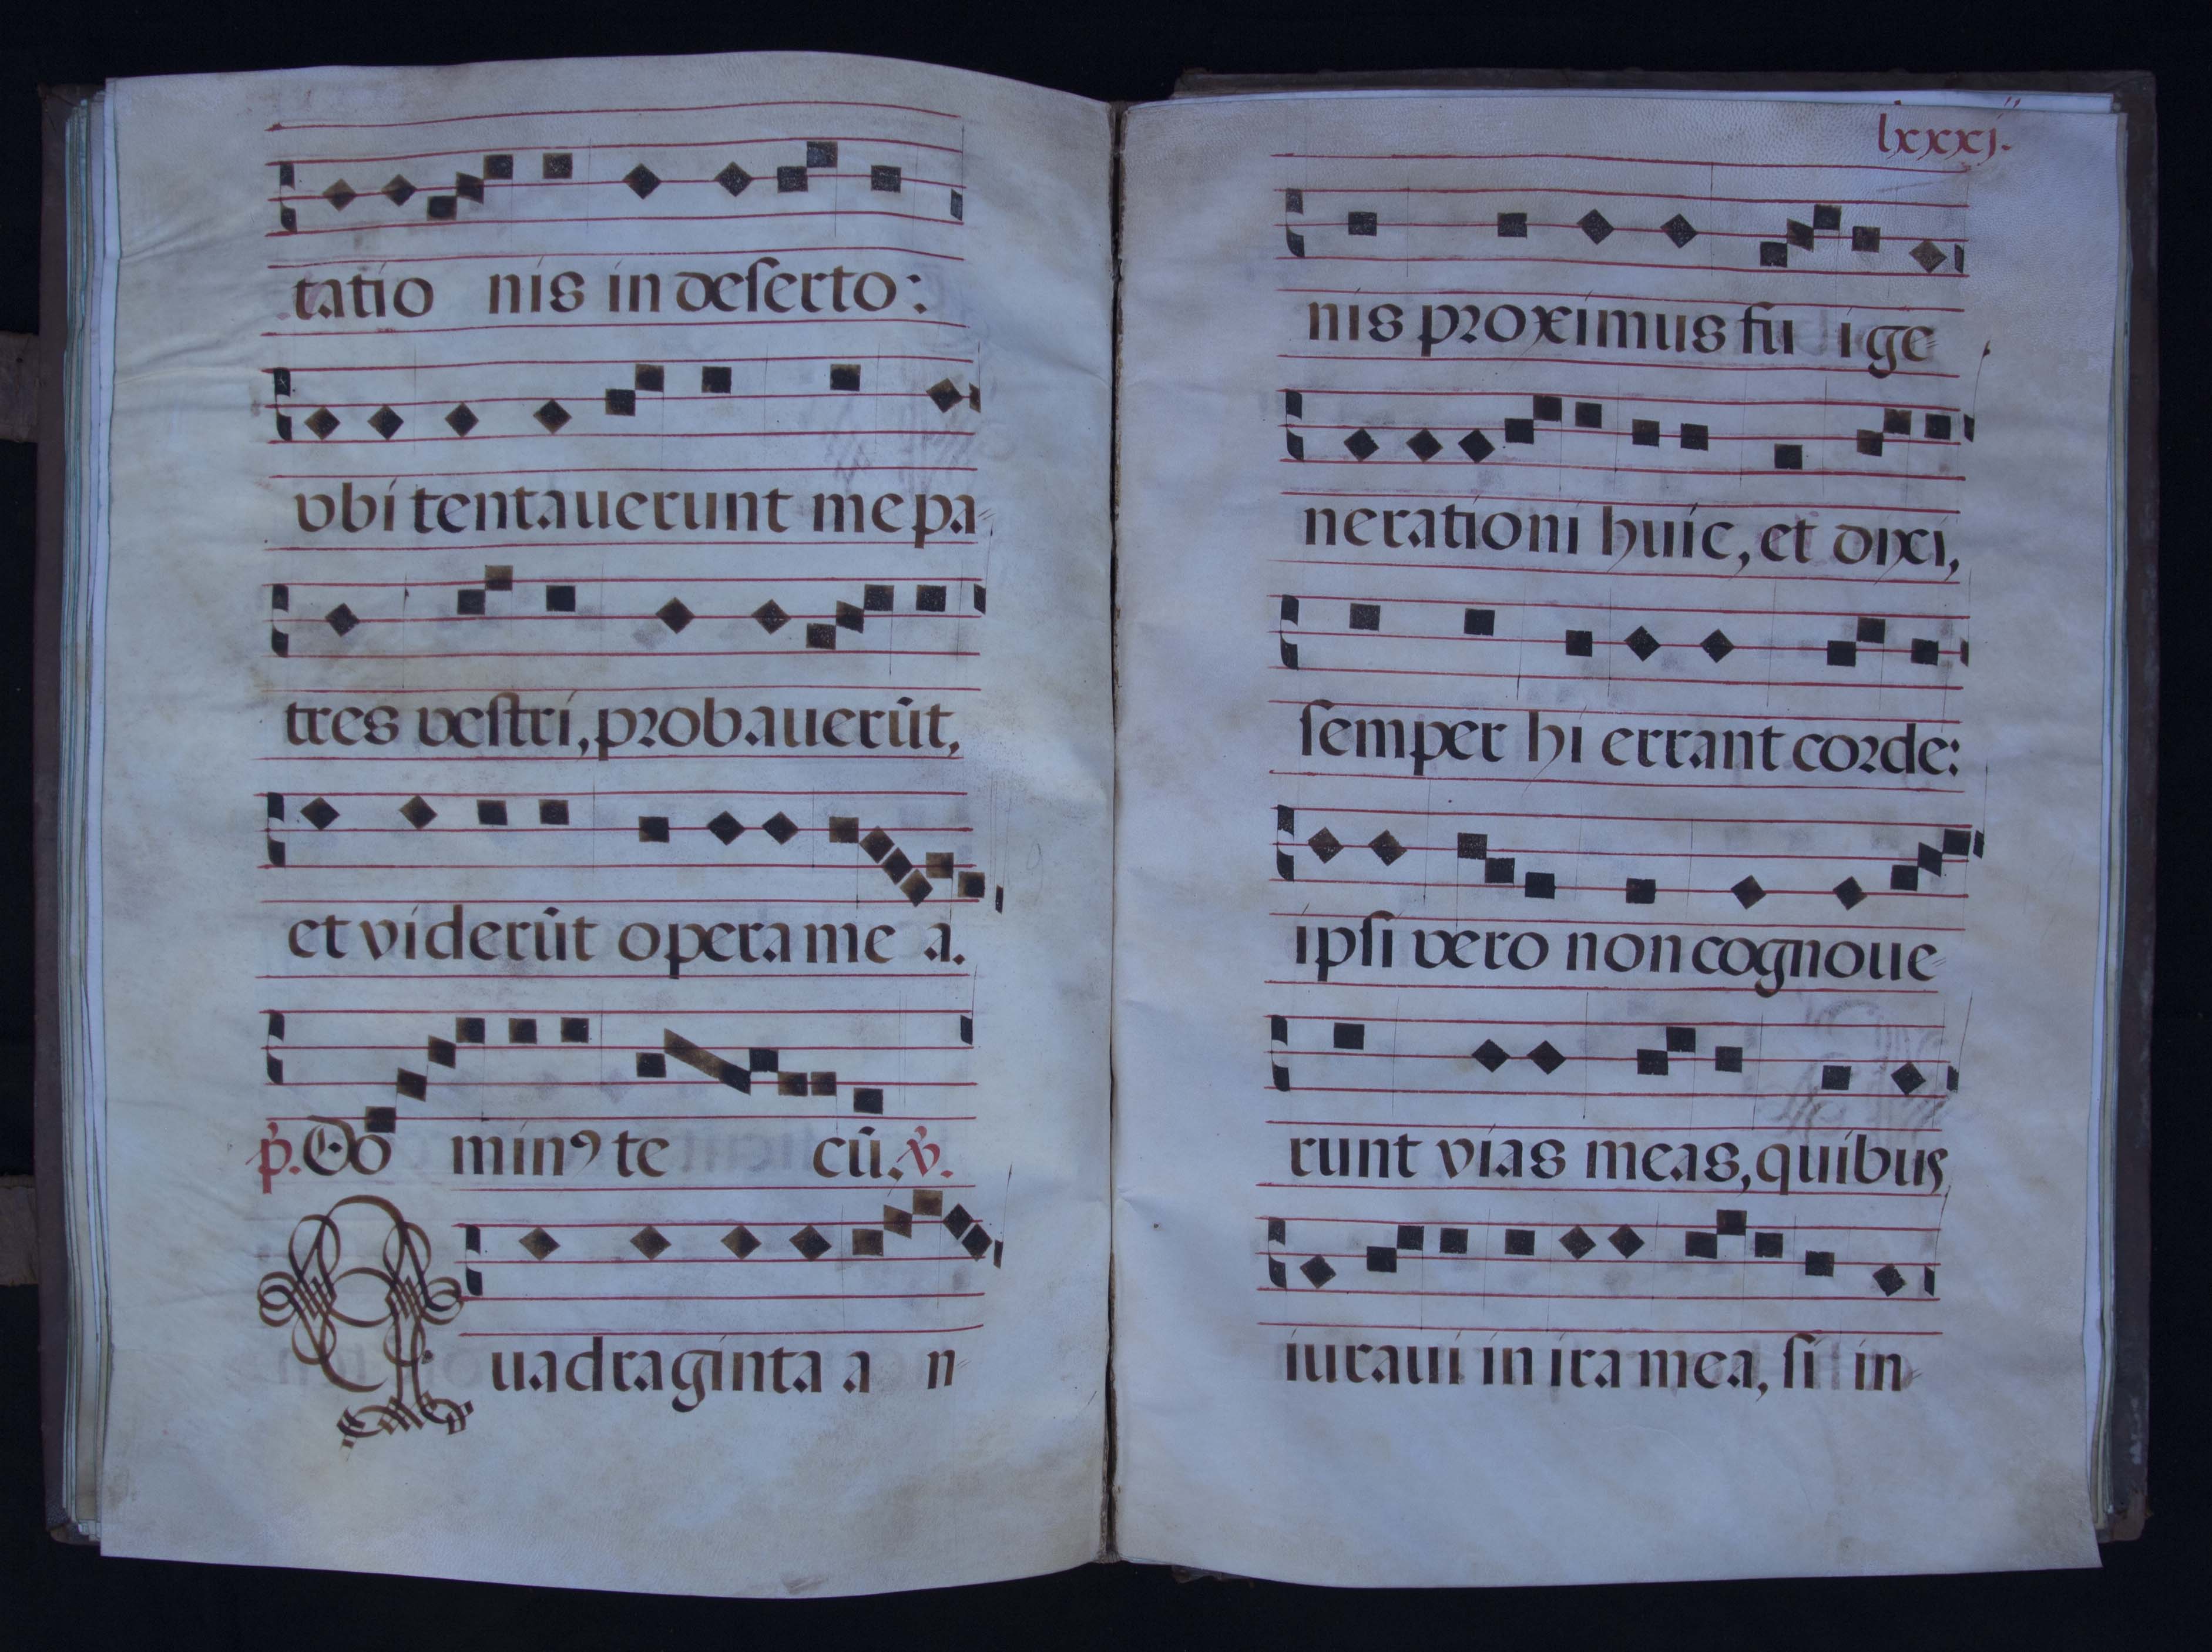 tatio nis in deserto:
vbi tentauerunt me pa=
tres vestri, probauerũt,
et viderũt opera me a.
p̃. Do minꝰ te cũ. ṽ.
Quadraginta a n=
lxxxj.
nis proximus fu i ge=
nerationi huic, et dixi,
semper hi errant corde:
ipsi vero non cognoue=
runt vias meas, quibus
iuraui in ira mea, si in